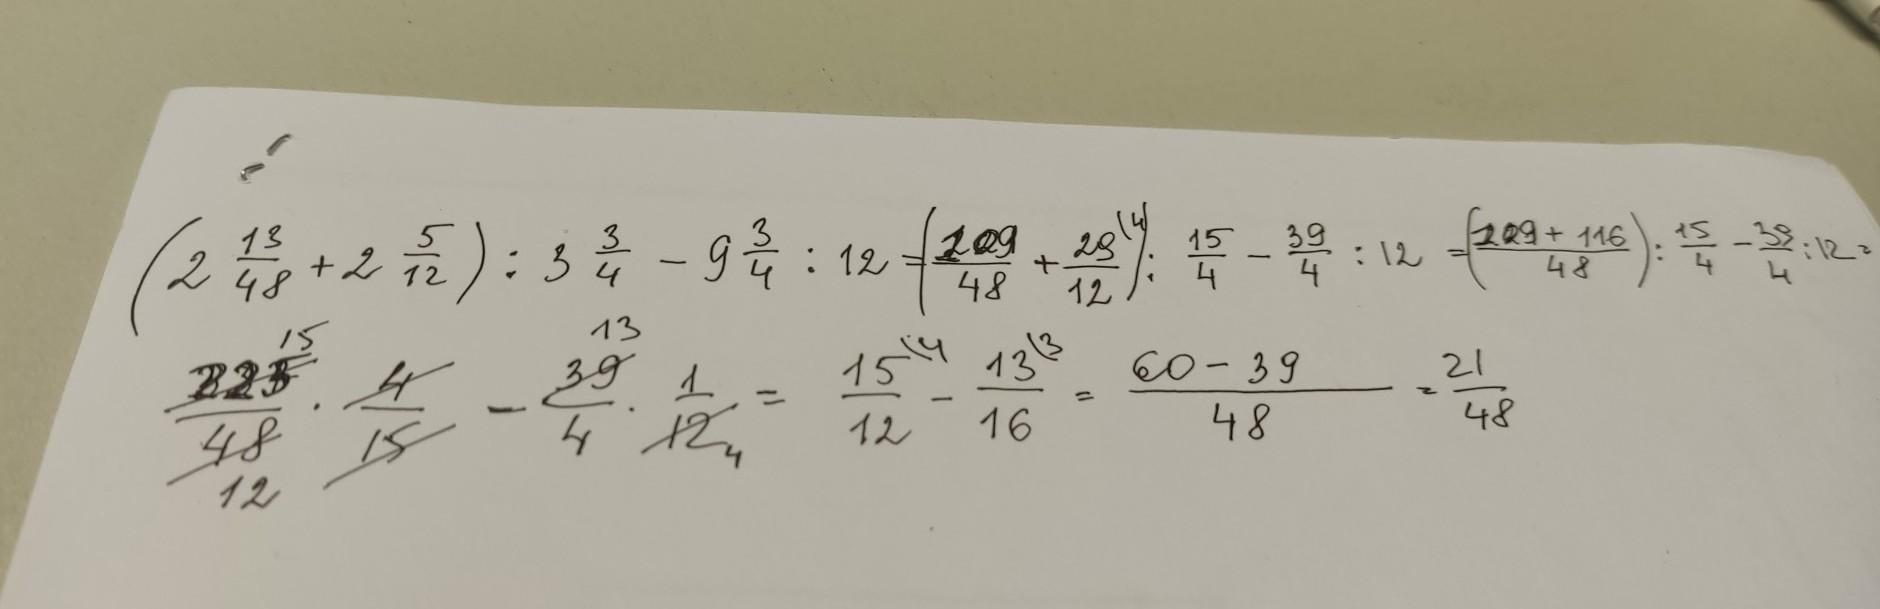 (2 13/48 + 2 5/12) : 3 3/4 - 9 3/4 : 12 = (109/48 + 29/12 (4) : 15/4 - 39/4 : 12 = (109 + 116/48) : 15/4 - 39/4 : 12 =
225/48 15 12 · 4/15 - 39/4 13 · 1/12 4 = 15/12 \4 - 13/16 \3 = 60 - 39/48 = 21/48